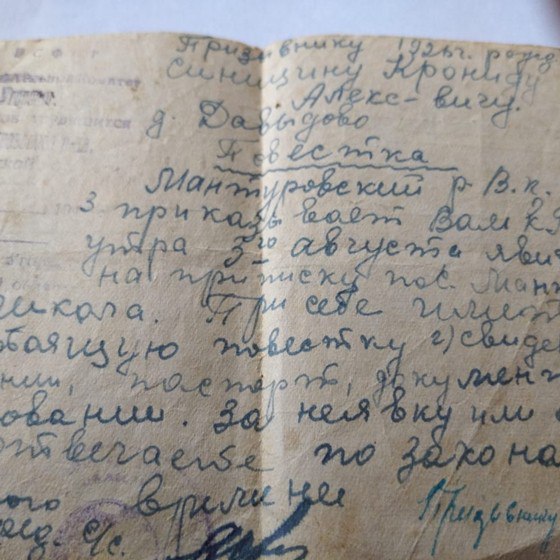 Призывнику 1926 г. рожд
Синицину Крониду
Алекс-вичу.
д. Давыдово
Повестка
Мантуровский р-В.к.
приказывает Вам к
утра 3го августа яви
на приписку пос. Мант
школа. При себе имет
стоящую повестку г) свиде
нии, паспорт, документ
овании. За неявку или
отвечаете по закона
ного времени
с/с.
Призывнику